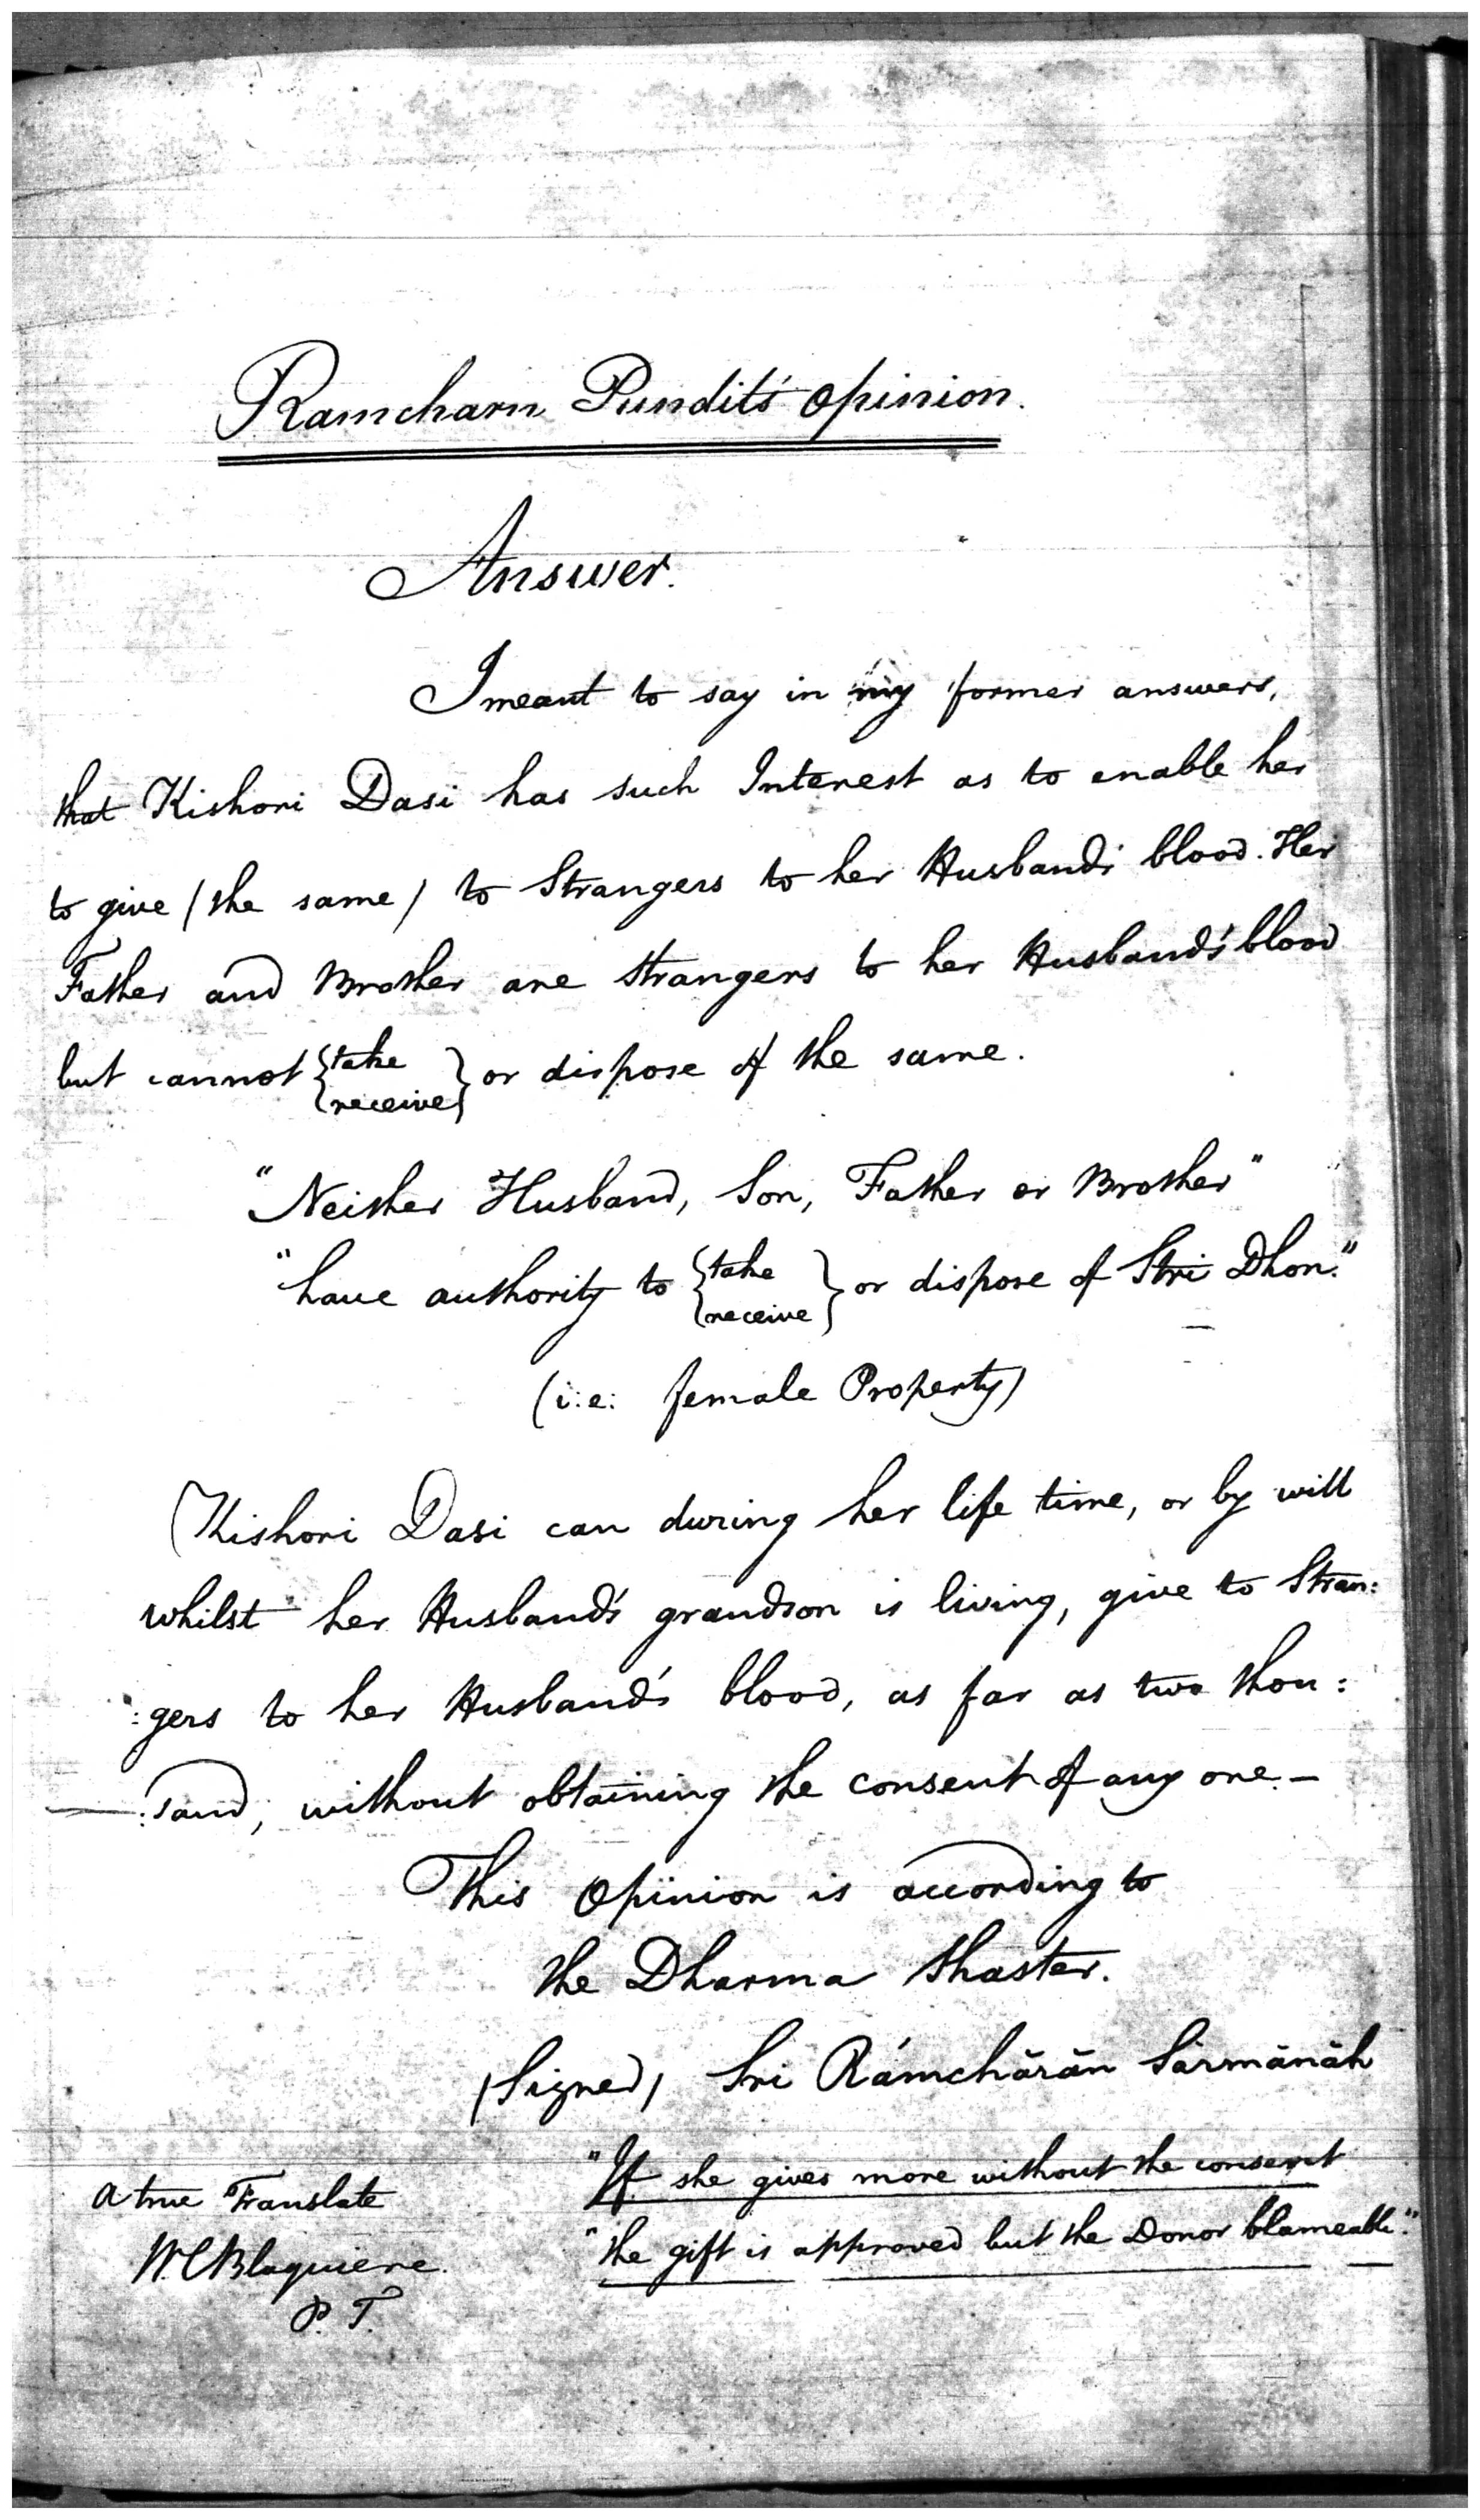 Ramcharn Pundit's opinion.
Answer.
I meant to say in my former answers,
that Kishori Dasi has such Interest as to enable her
to give (the same) to Strangers to her Husband's blood. Her
Father and Brother are strangers to her Husband's blood
but cannot {take receive} or dispose of the same.
"Neither Husband, Son, Father or Brother"
"have authority to {take receive} or dispose of Stri Dhon."
(i:e: female Property)
Kishori Dasi can during her life time, or by will
whilst her Husband's grandson is living, give to Stran:
:gers to her Husband's blood, as far as two thou:
:sand, without obtaining the consent of any one.—
This Opinion is according to
the Dharma Shaster.
(Signed) Sri Rámchārān Sārmānāh
"If she gives more without the consent
"the gift is approved but the Donor blameable."
A true Translate
W. C. Blaquiere.
P. T.